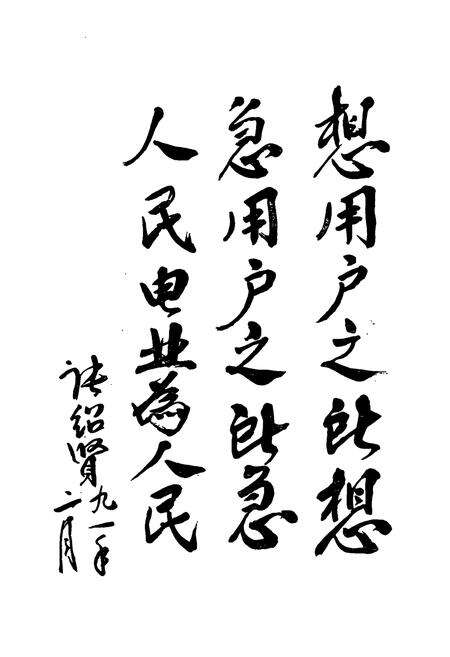 想用户之所想
急用户之所急
人民电业为人民
张绍贤九一年
二月